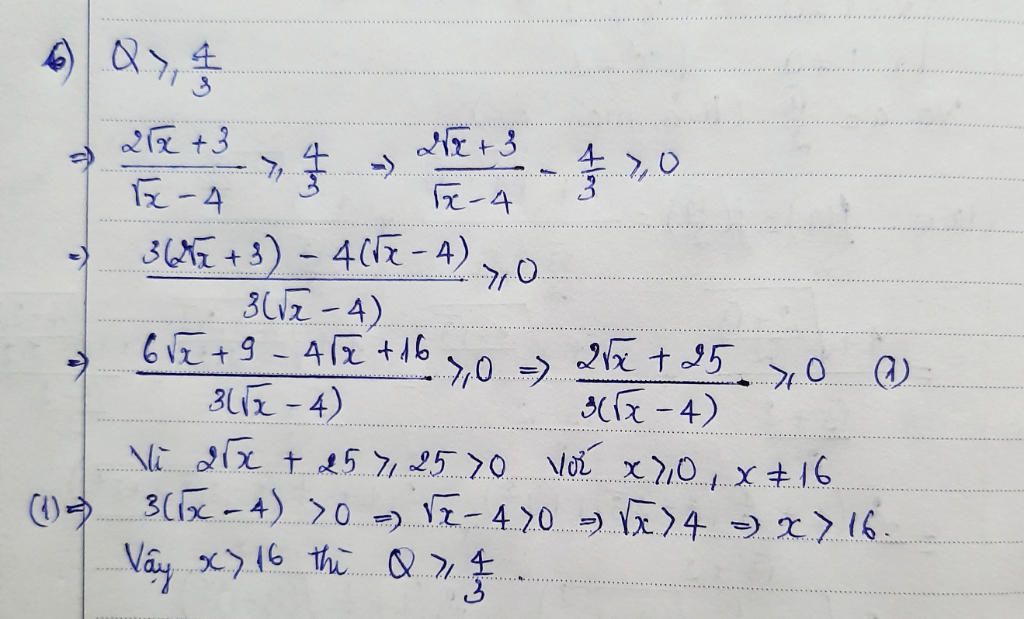 b) Q ≥ 4/3
⇒ (2√x + 3)/(√x - 4) ≥ 4/3 ⇒ (2√x + 3)/(√x - 4) - 4/3 ≥ 0
⇒ (3(2√x + 3) - 4(√x - 4))/(3(√x - 4)) ≥ 0
⇒ (6√x + 9 - 4√x + 16)/(3(√x - 4)) ≥ 0 ⇒ (2√x + 25)/(3(√x - 4)) ≥ 0 (1)
Vì 2√x + 25 ≥ 25 > 0 với x ≥ 0, x ≠ 16
(1) ⇒ 3(√x - 4) > 0 ⇒ √x - 4 > 0 ⇒ √x > 4 ⇒ x > 16.
Vậy x > 16 thì Q ≥ 4/3.